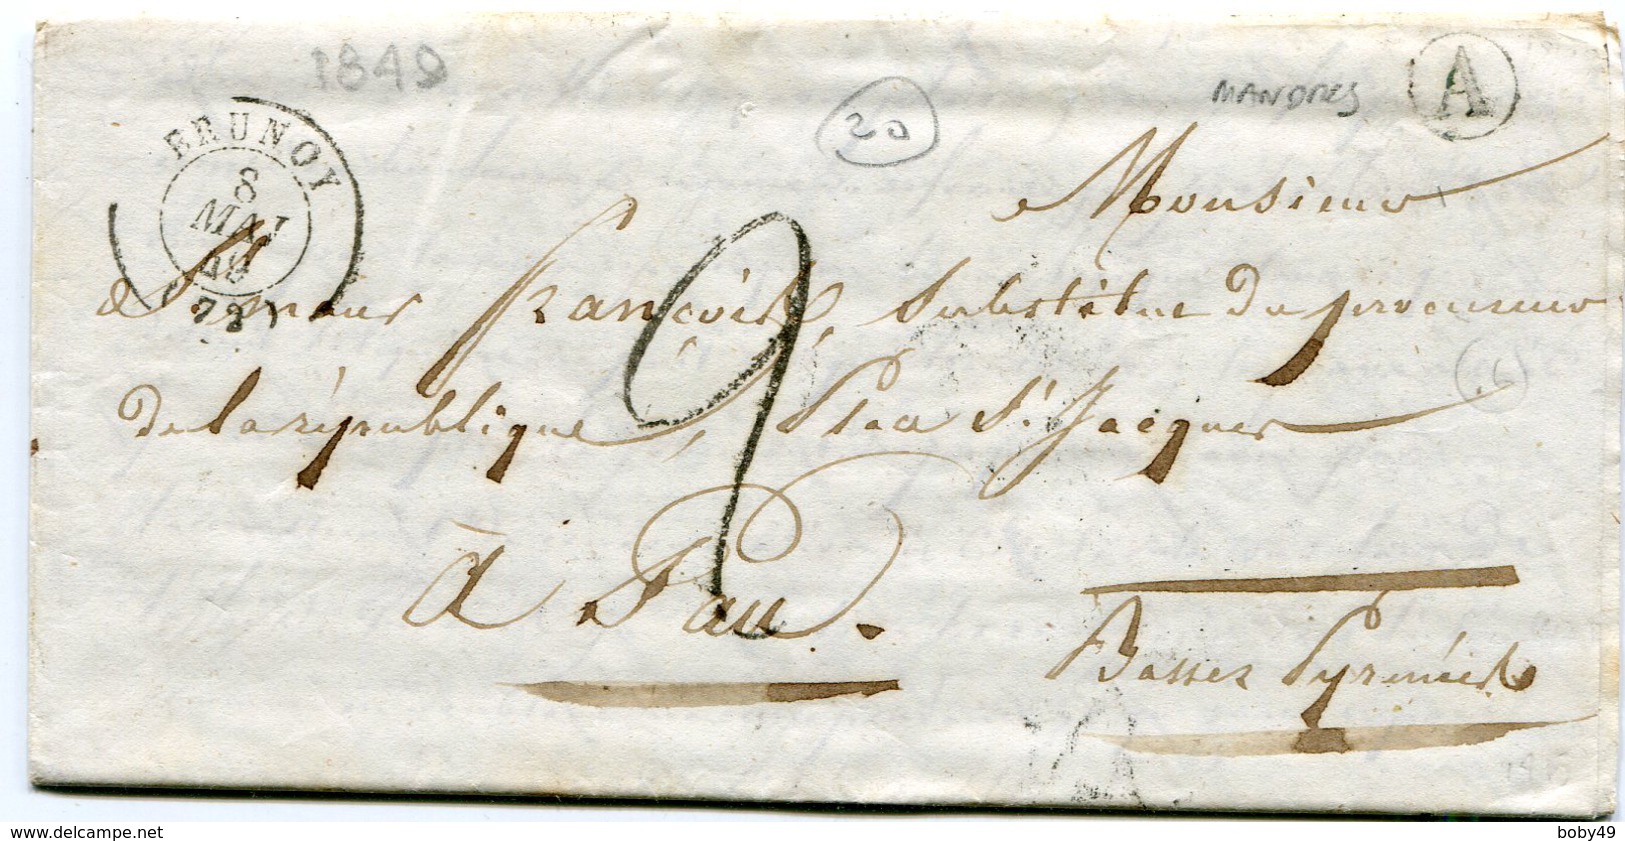 1849
MANDRES
A
20
BRUNOY
8
MAI
49
(72)
Monsieur
françois, Substitut du procureur
de la république, Place St. Jacques
2
à Pau.
Basses Pyrénées
© delcampe.com
boby49